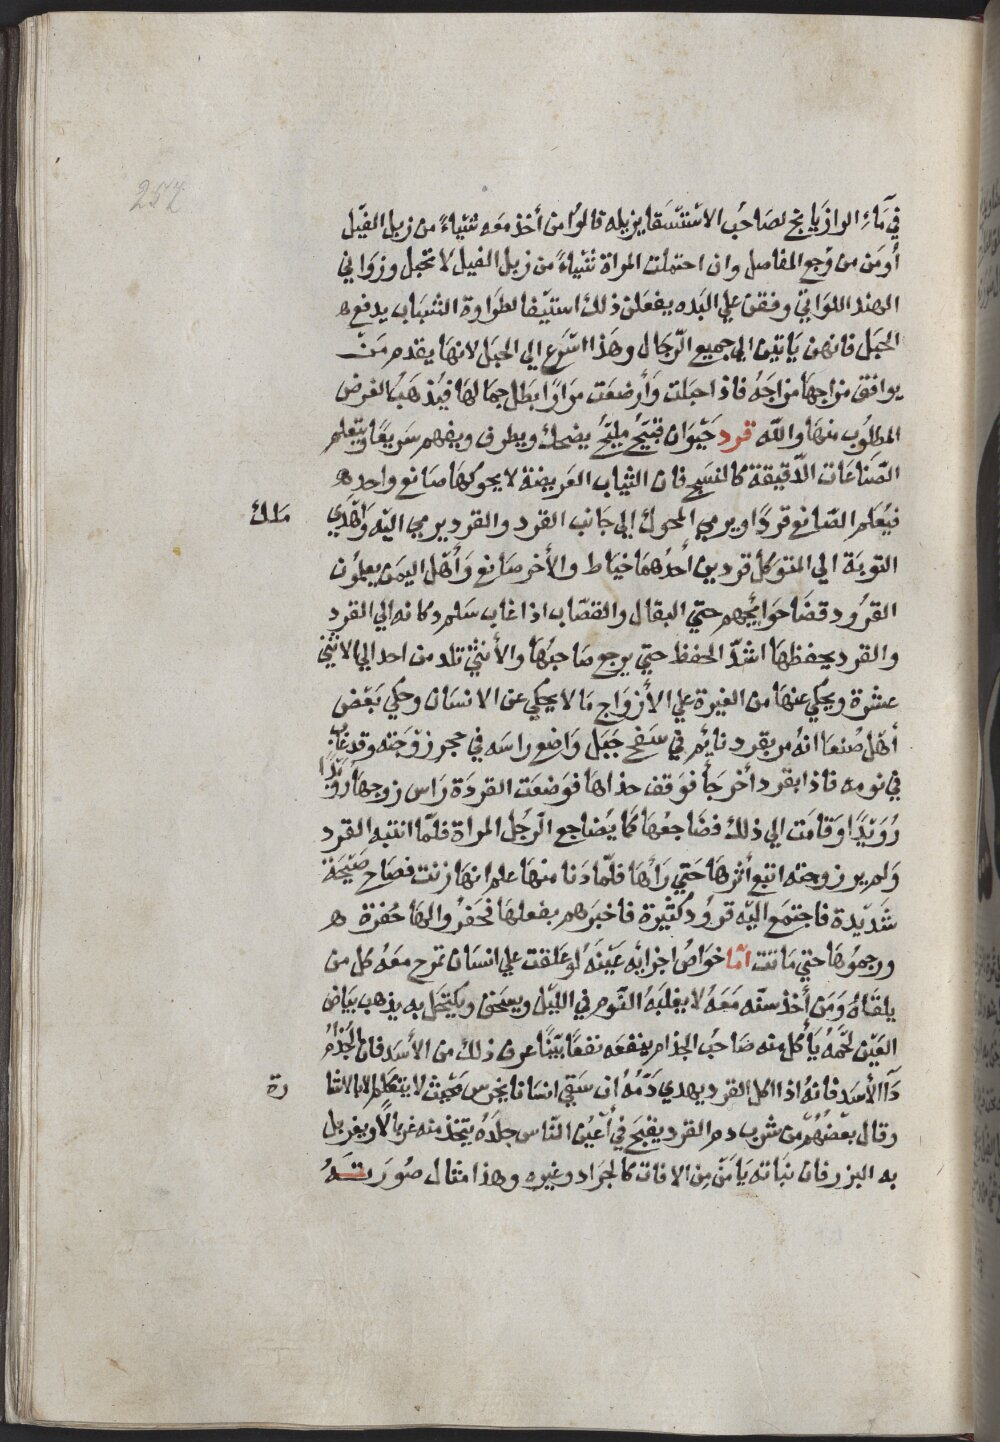 252
في مآءِ الرازيانج لصاحب الاستسقا يزيله قالوا من أخذ معه شياءً من زبل الفيل
أومن من وجع المفاصل وان احتملت المراة شياءً من زبل الفيل لا تحبل وزواني
الهند اللواتي وقفن علي البده يفعلن ذلك استيفا لطراوة الشباب يدفع ه
الحبل فانهن ياتين الي جميع الرجال وهذا اسرع الي الحبل لانها يقدم من
يوافق مزاجها مزاجه فاذا حبلت وأرضعت مرارًا بطل جمالها فيذهب الغرض
المطلوب منها والله قرد حيوان قبيح مليح يضحك ويطرف ويفهم سريعًا ويتعلم
الصناعات الدقيقة كالنسج فان الثياب العريضة لا يحوكها صانع واحد ه
فيعلم الصانع قردًا ويرمي المحوك إلي جانب القرد والقرد يرمي اليه واهدي
ملك
النوبة الي المتوكل قردين أحدهما خياط والأخر صانع وأهل اليمن يعلمون
القرود قضا حوائجهم حتي البقال والقصاب اذا غاب سلم دكانه الي القرد
والقرد يحفظها اشدّ الحفظ حتي يرجع صاحبها والأنثي تلد من احد الي الاثني
عشرة ويحكي عنها من الغيرة علي الأزواج ما لا يحكي عن الانسان وحكي بعض
أهل صنعا انه مر بقرد نايم في سفح جبل واضع راسه في حجر زوجته وقد غاب
في نومه فاذا بقرد أخر جأ فوقف حذاها فوضعت القردة راس زوجها رويدًا
رويدًا وقامت الي ذلك فضاجعها كما يضاجع الرجل المراة فلمّا انتبه القرد
ولم ير زوجته اتبع أثرها حتي رأها فلمّا دنا منها علم انها زنت فصاح صيحة
شديدة فاجتمع اليه قرود كثيرة فاخبرهم بفعلها فحفروا لها حفرة ه
ورجموها حتي ماتت امّا خواص اجزايه عينه لو علقت علي انسان تمرح معه كل من
يلقاه ومن أخذ سنه معه لا يغلبه النوم في الليل ويسحق ويكتحل به يذهب بياض
العين لحمه يأكل منه صاحب الجذام ينفعه نفعًا بينًا عرف ذلك من الأسد فان الجذام
دآ الأسد فانه اذا اكل القرد يهدي دمه ان سقي انسانا يخرس بحيث لا يتكلم الا بالاشا
رة
وقال بعضهم من شرب دم القرد يقبح في أعين الناس جلده يتخذ منه غربالاً ويغربل
به البزر فان نباته يأمن من الافات كالجراد وغيره وهذا مثال صورته